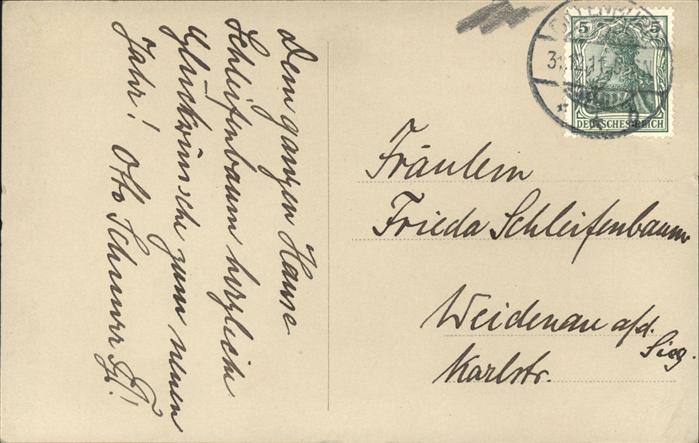 Dem ganzen Hause
Schleifenbaum herzliche
Glückwünsche zum neuen
Jahr! Otto Schnurr
5 5
DEUTSCHES REICH
Fräulein
Frieda Schleifenbaum
Weidenau a/d.
Sieg.
Karlstr.